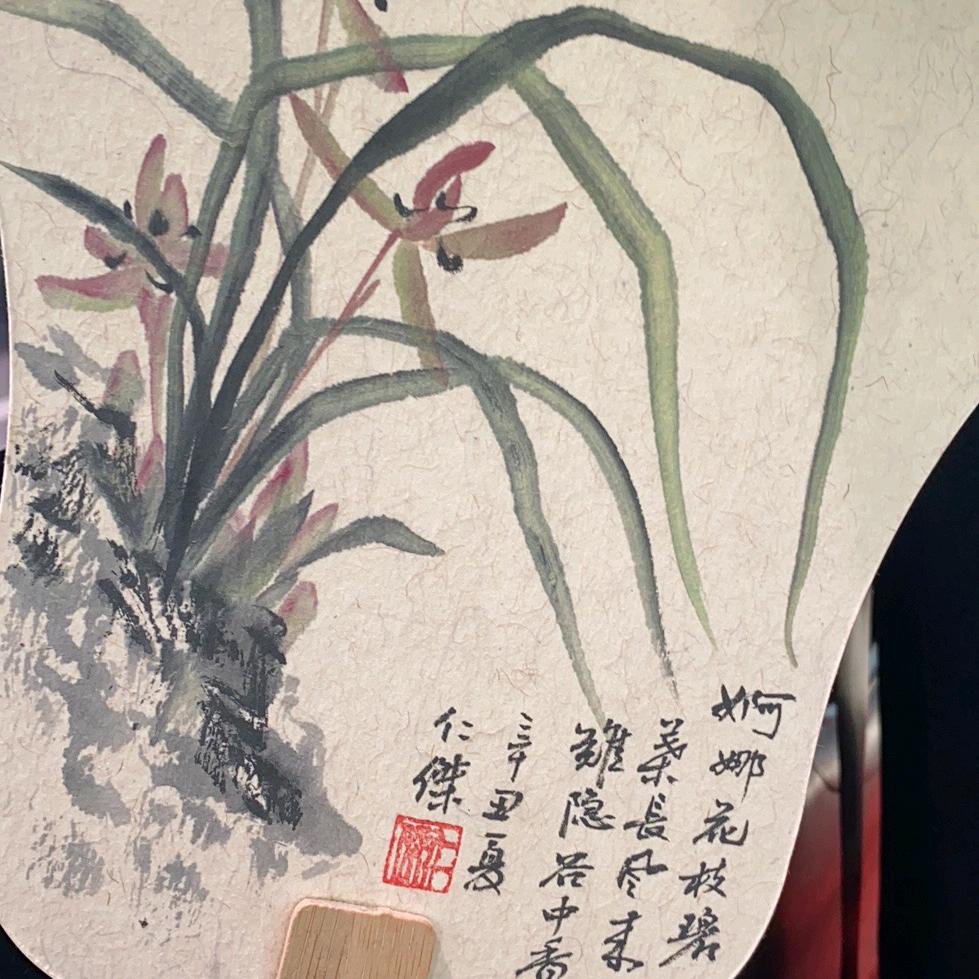 婀娜花枝碧
葉長风来
難隐谷中香
辛丑夏
仁傑